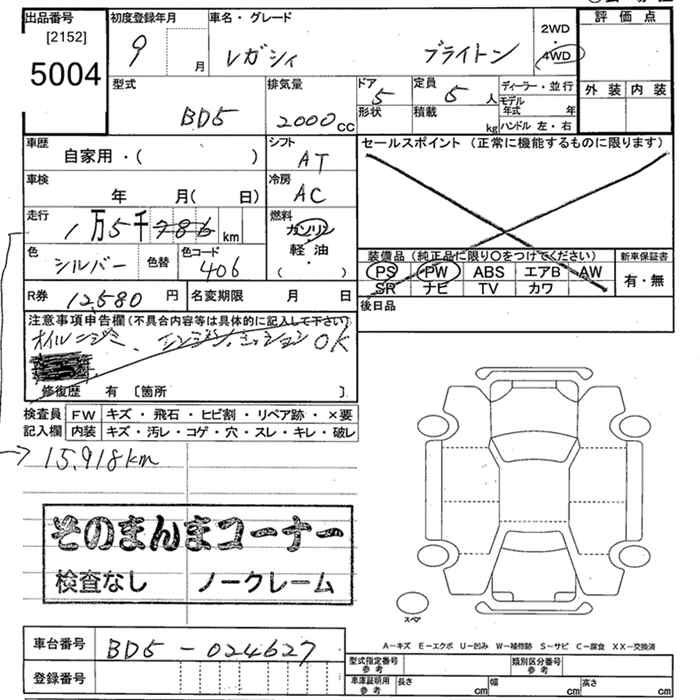 出品番号
[2152]
5004
初度登録年月
9 月
車名・グレード
レガシィ ブライトン
2WD
・
4WD
評価点
外装 内装
型式
BD5
排気量
2000 CC
ドア
5
形状
定員
5 人
積載
kg
ディーラー・並行
モデル年式 年
ハンドル 左・右
車歴
自家用・( )
シフト
AT
セールスポイント (正常に機能するものに限ります)
車検
年 月( 日)
冷房
AC
走行
1万5千786 km
燃料
ガソリン
軽・油
( )
色
シルバー
色替
色コード
406
装備品 (純正品に限り○をつけてください)
PS PW ABS エアB AW
SR ナビ TV カワ
新車保証書
有・無
R券 12,580 円
名変期限 月 日
後日品
注意事項申告欄 (不具合内容等は具体的に記入して下さい)
オイルニジミ、エンジン、ミッションOK
修復歴 有 〔箇所 〕
検査員
記入欄
FW キズ・飛石・ヒビ割・リペア跡・×要
内装 キズ・汚レ・コゲ・穴・スレ・キレ・破レ
15,918km
そのまんまコーナー
検査なし ノークレーム
スペア
A−キズ E−エクボ U−凹み W−補修跡 S−サビ C−腐食 XX−交換済
車台番号 BD5 - 024627
登録番号
型式指定番号
参考
類別区分番号
参考
車庫証明用
参考
長さ cm 幅 cm 高さ cm